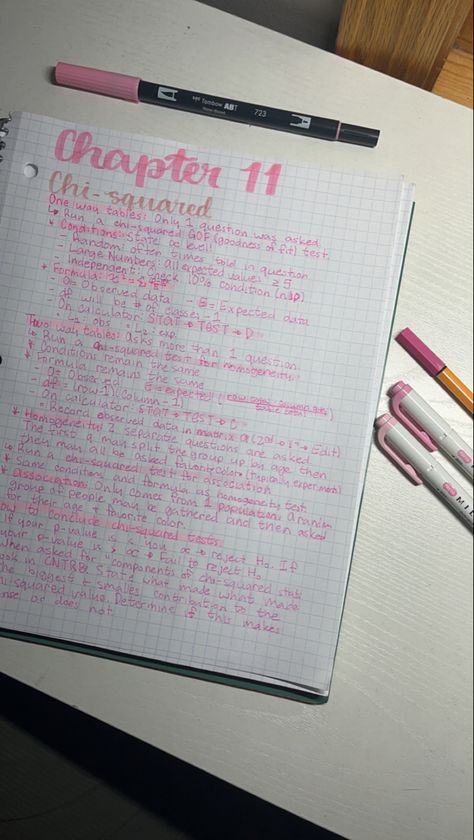 Tombow ABT 723
Chapter 11
Chi-squared
One way tables: Only 1 question was asked
Run a chi-squared GOF (goodness of fit) test
* Conditions: State α level!
- Random: often times told in question
- Large Numbers: All expected values ≥ 5
- Independent: check 10% condition
* Formula:
- O = Observed data - E = Expected data
- df will be # of classes - 1
- On calculator: STAT → TEST → D
L1: obs L2: exp.
Two way tables: asks more than 1 question.
Run a chi-squared test for homogeneity.
* Conditions remain the same
* Formula remains the same
- O = Observed E = expected (row total · column total / table total)
- df = (row-1)(column-1)
- On calculator: STAT → TEST → C
Record observed data in matrix A (2nd → x⁻¹ → Edit)
* Homogeneity: 2 separate questions are asked.
The test may split the group up by age, then
they may all be asked favorite color (typically experiment)
Run a chi-squared test for association
* Same conditions and formula as homogeneity test
* Association: Only comes from 1 population. A random
group of people may be gathered and then asked
for their age & favorite color.
How to conclude chi-squared tests:
If your p-value is < you α → reject H₀. If
your p-value is > α → Fail to reject H₀
When asked for "components of chi-squared stat"
look in CNTRB. State what made what made
the biggest & smallest contribution to the
chi squared value. Determine if this makes
sense or does not